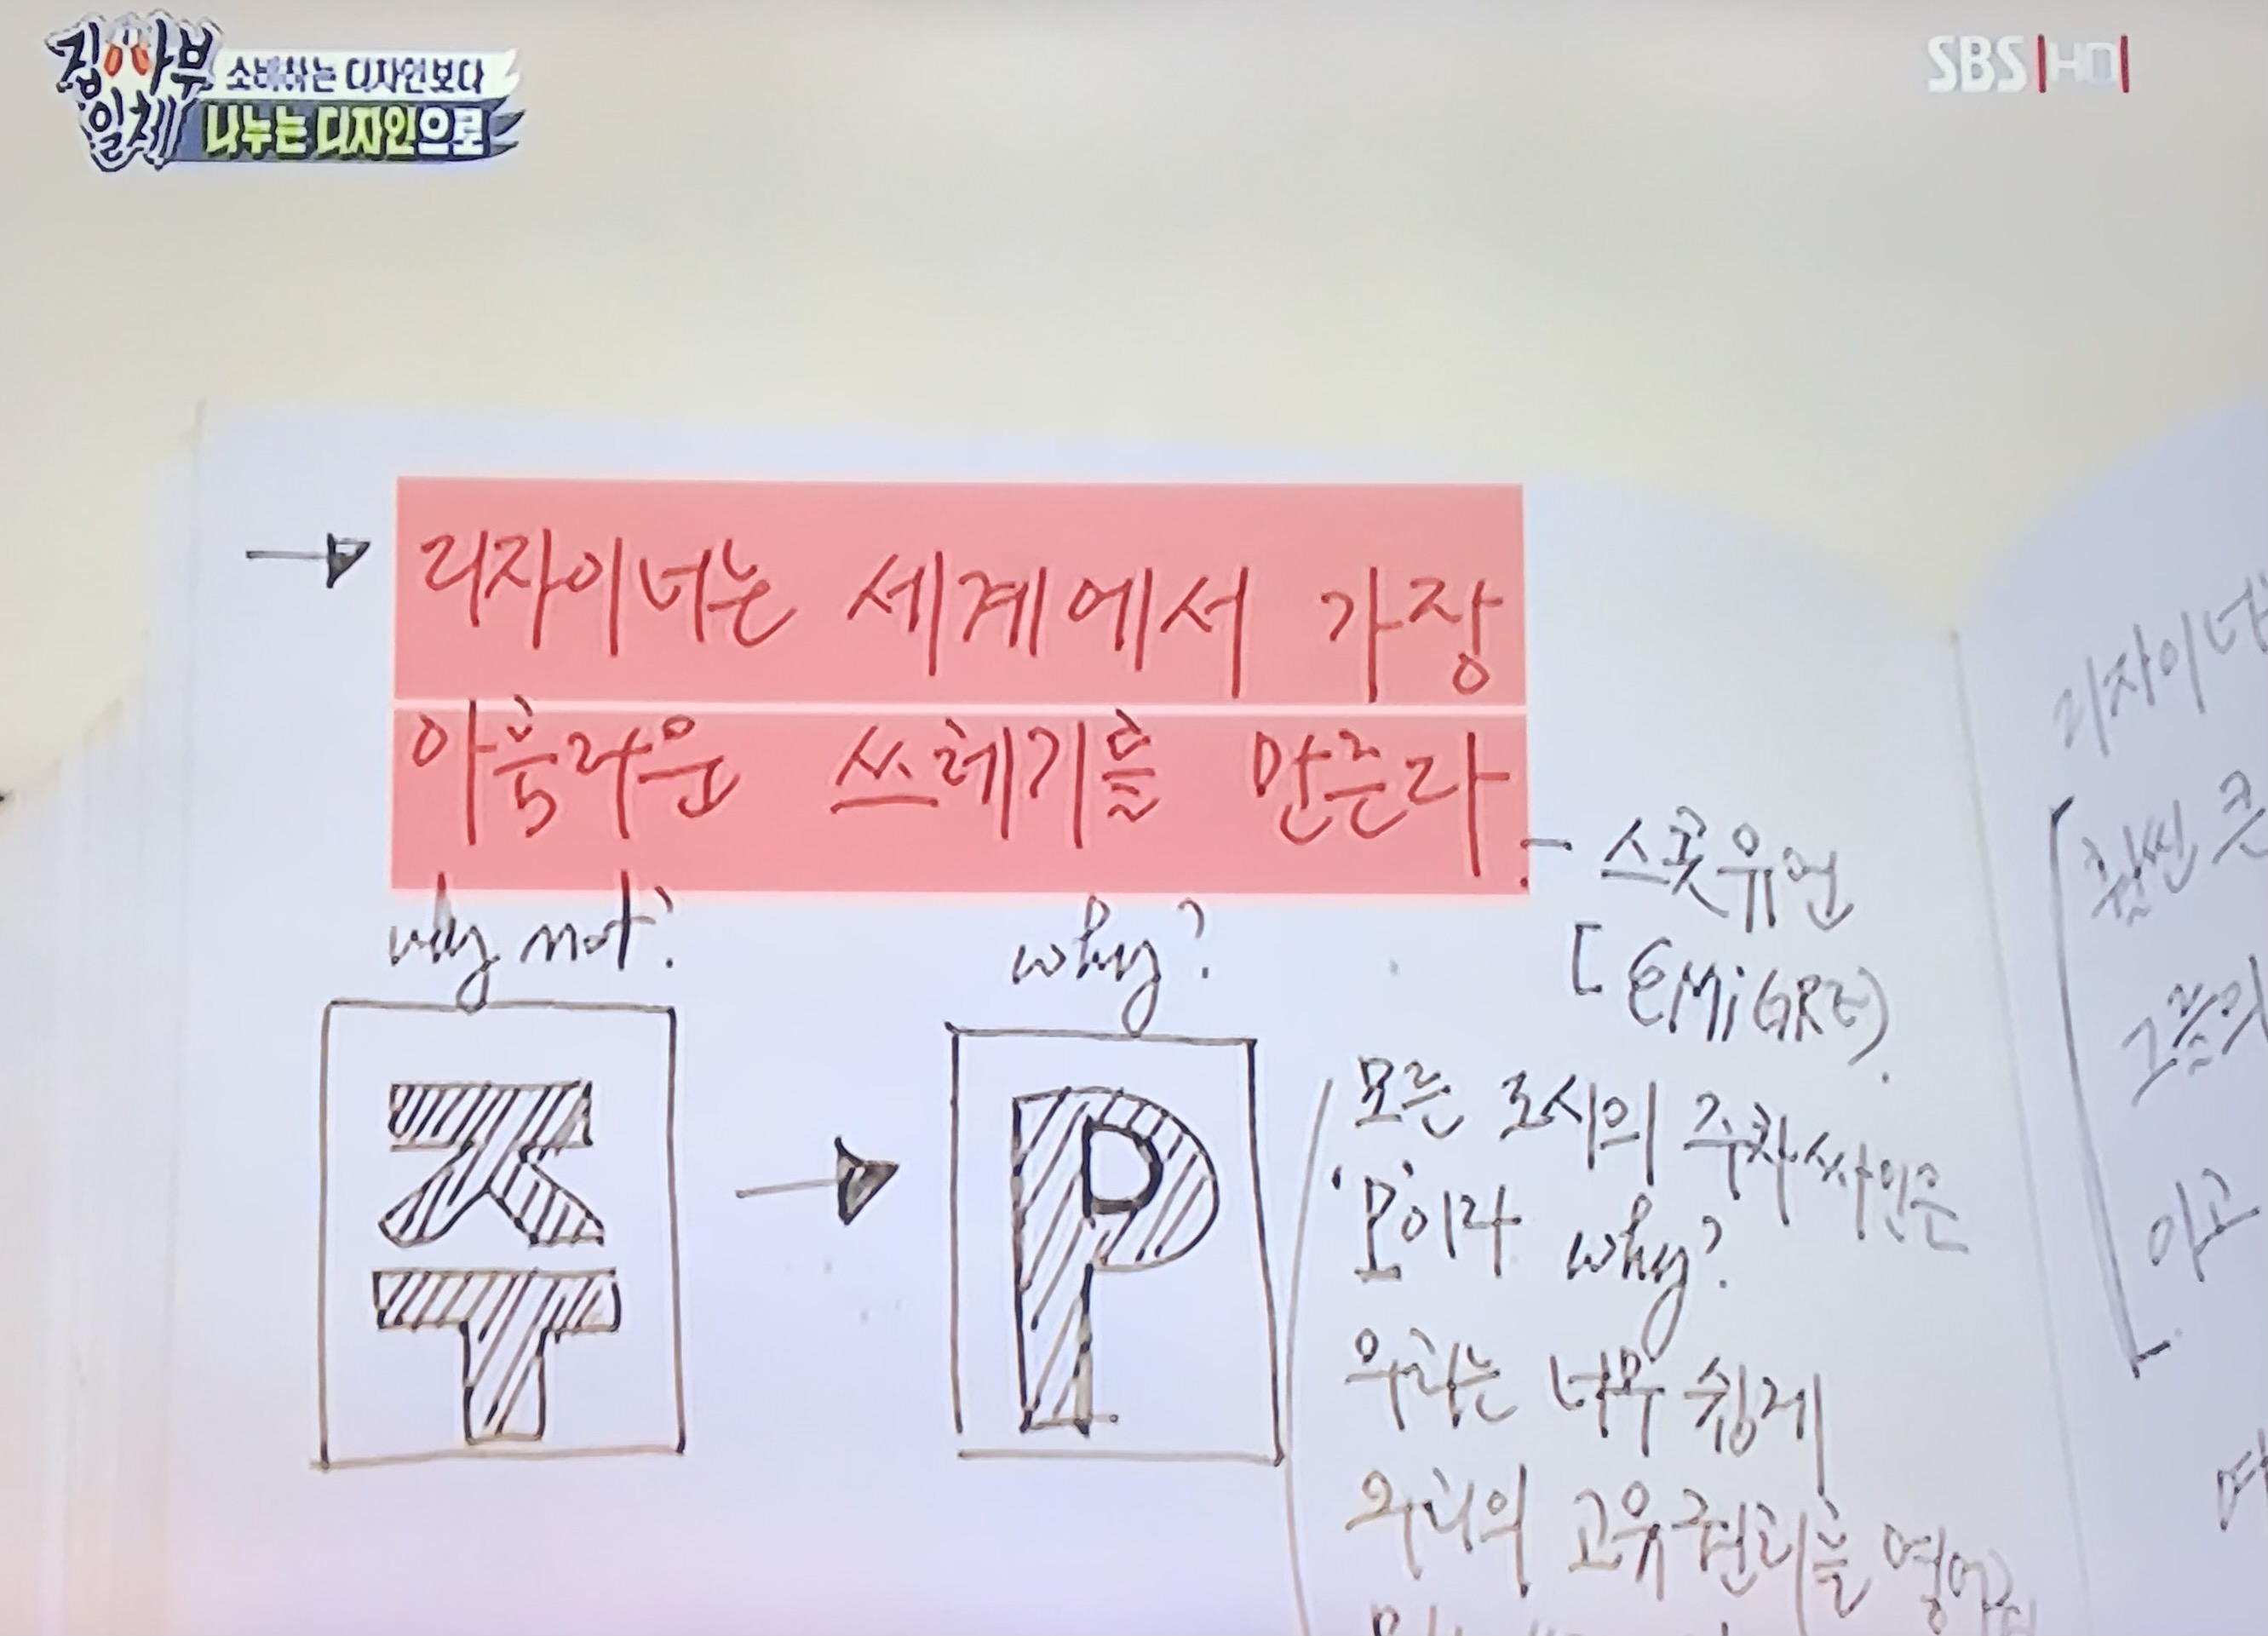 집사부
일체
소비하는 디자인보다
나누는 디자인으로
SBS HD
디자이너는 세계에서 가장
아름다운 쓰레기를 만든다.
- 스콧유언
[EMiGRE).
why not?
주
why?
P
모든 도시의 주차싸인은
'P'이다 why?
우리는 너무 쉽게
우리의 고유권리를
디자이너
그들의